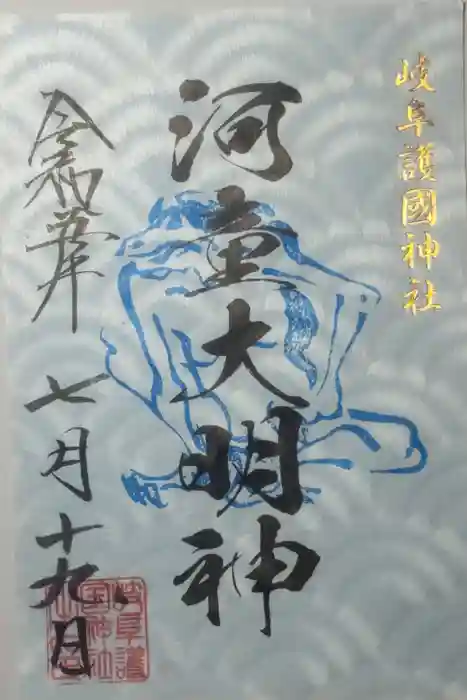 岐阜護國神社
河童大明神
令和年 七月十九日
岐阜護
国神社